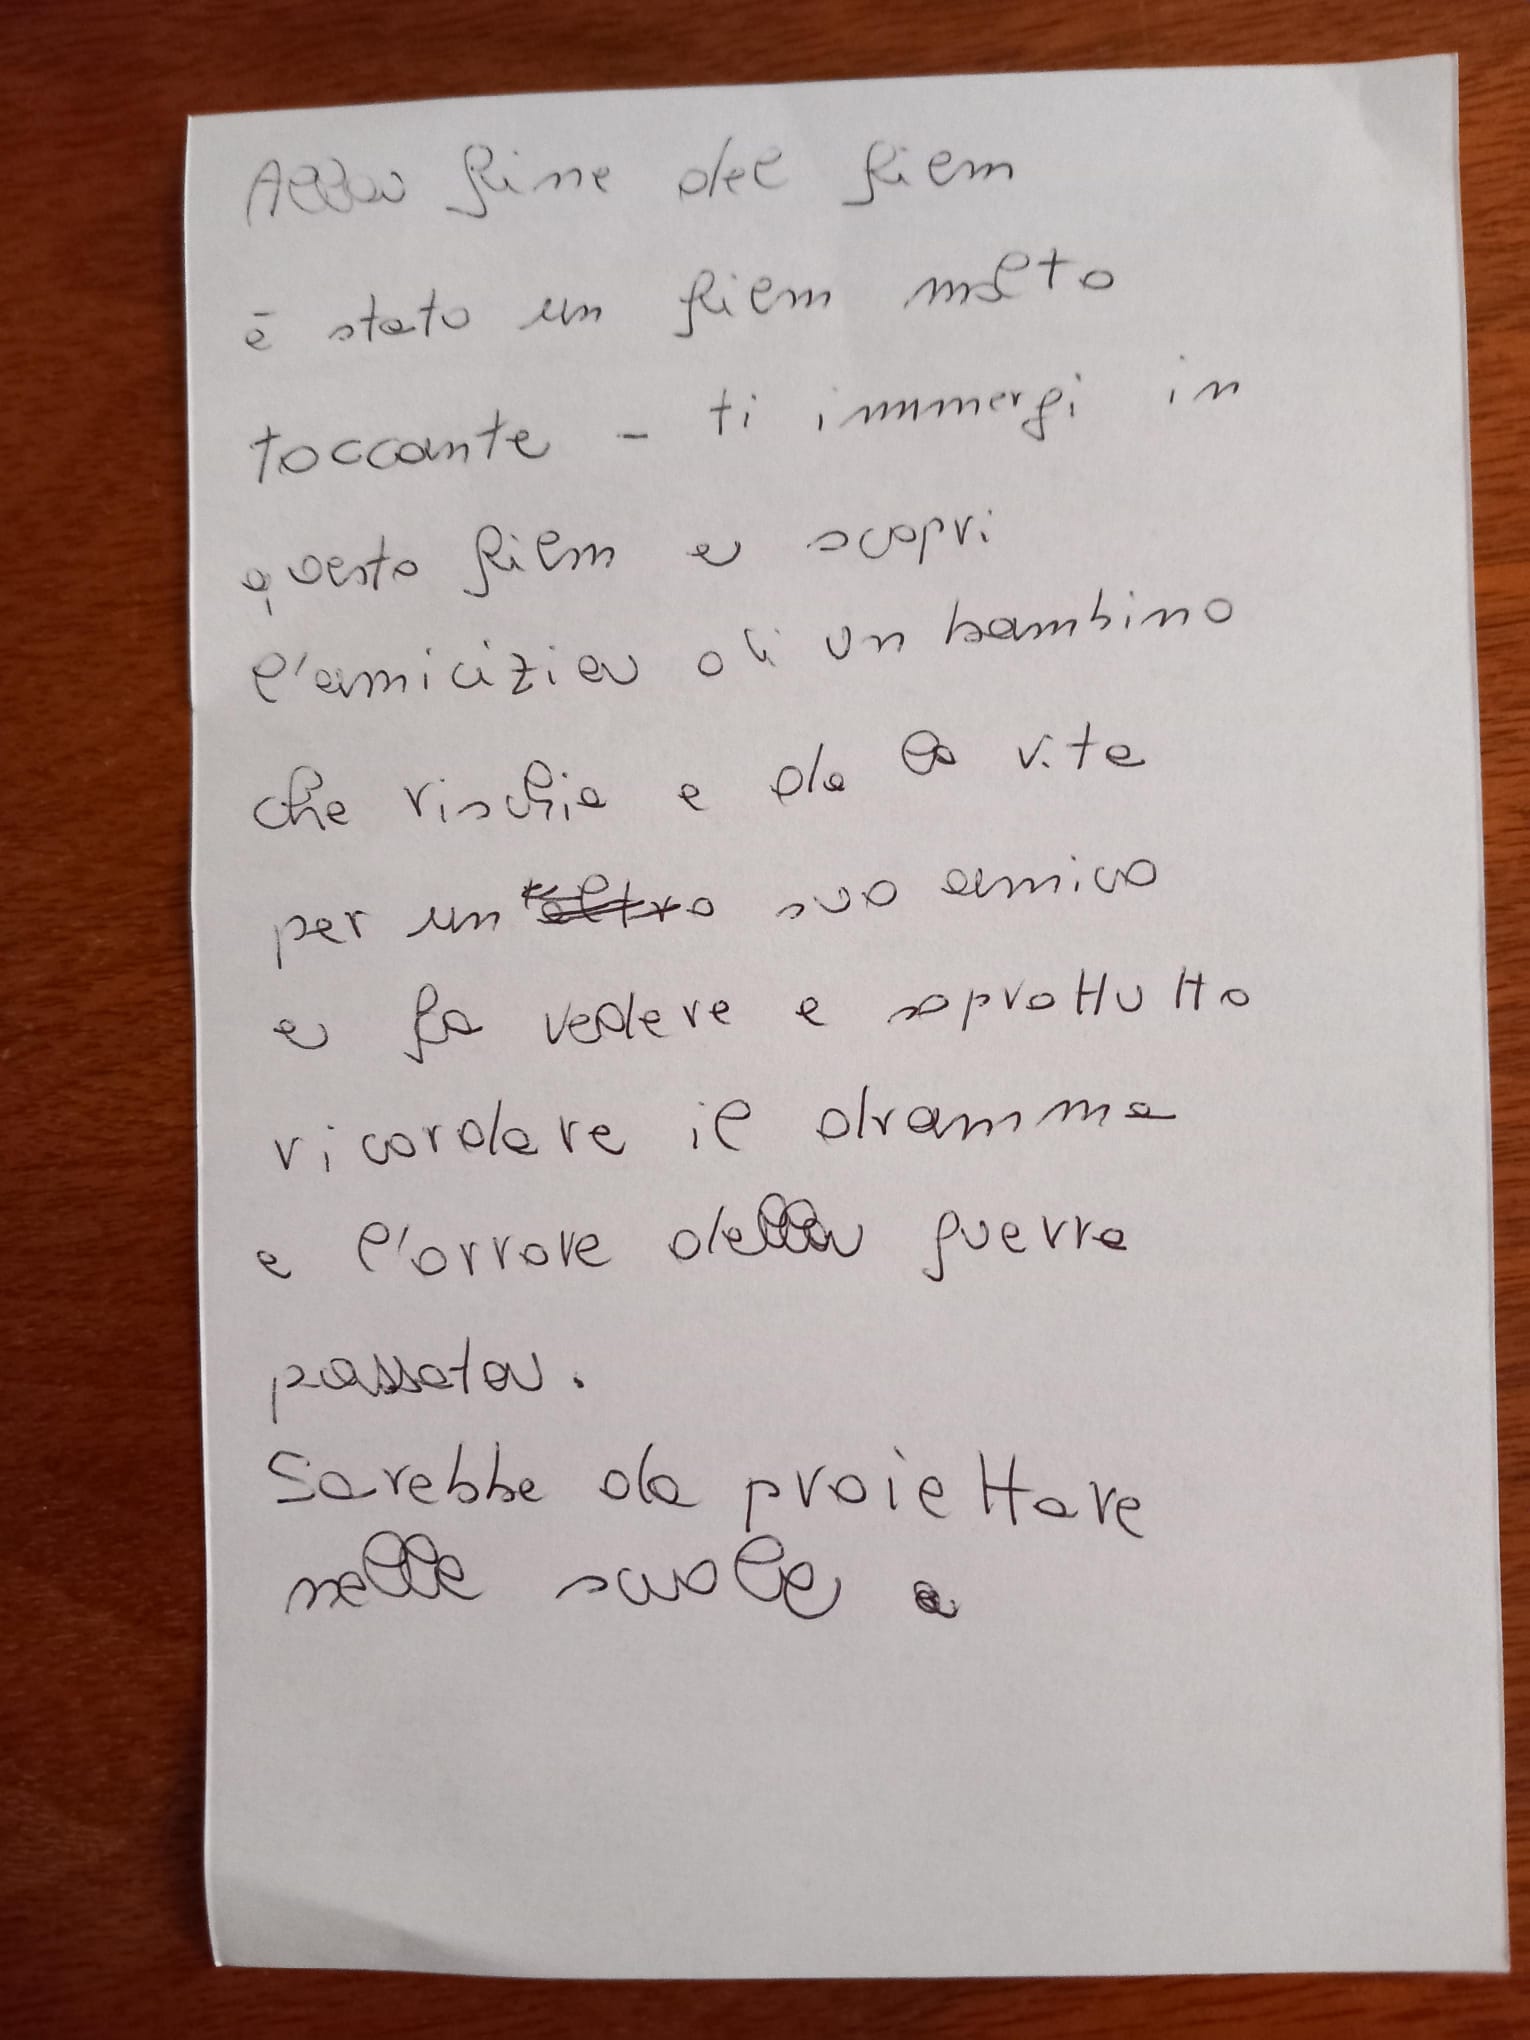 Alla fine del film
è stato un film molto
toccante - ti immergi in
questo film e scopri
l'amicizia di un bambino
che rischia e da la vita
per un altro suo amico
e fa vedere e soprattutto
ricordare il dramma
e l'orrore della guerra
passata.
Sarebbe da proiettare
nelle scuole e